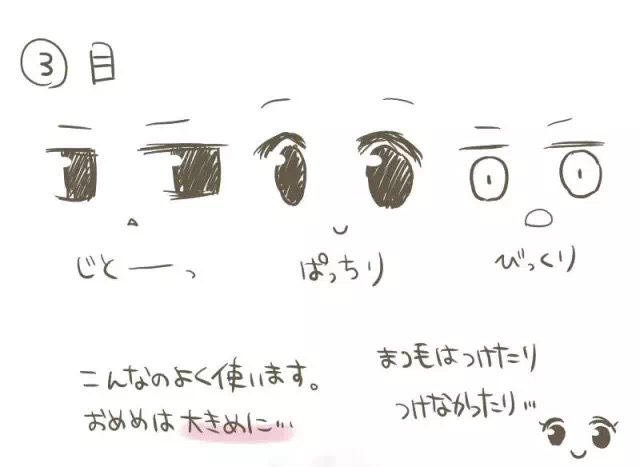 ③ 目
じとーっ
ぱっちり
びっくり
こんなのよく使います。
おめめは大きめに…
まつ毛はつけたり
つけなかったり…